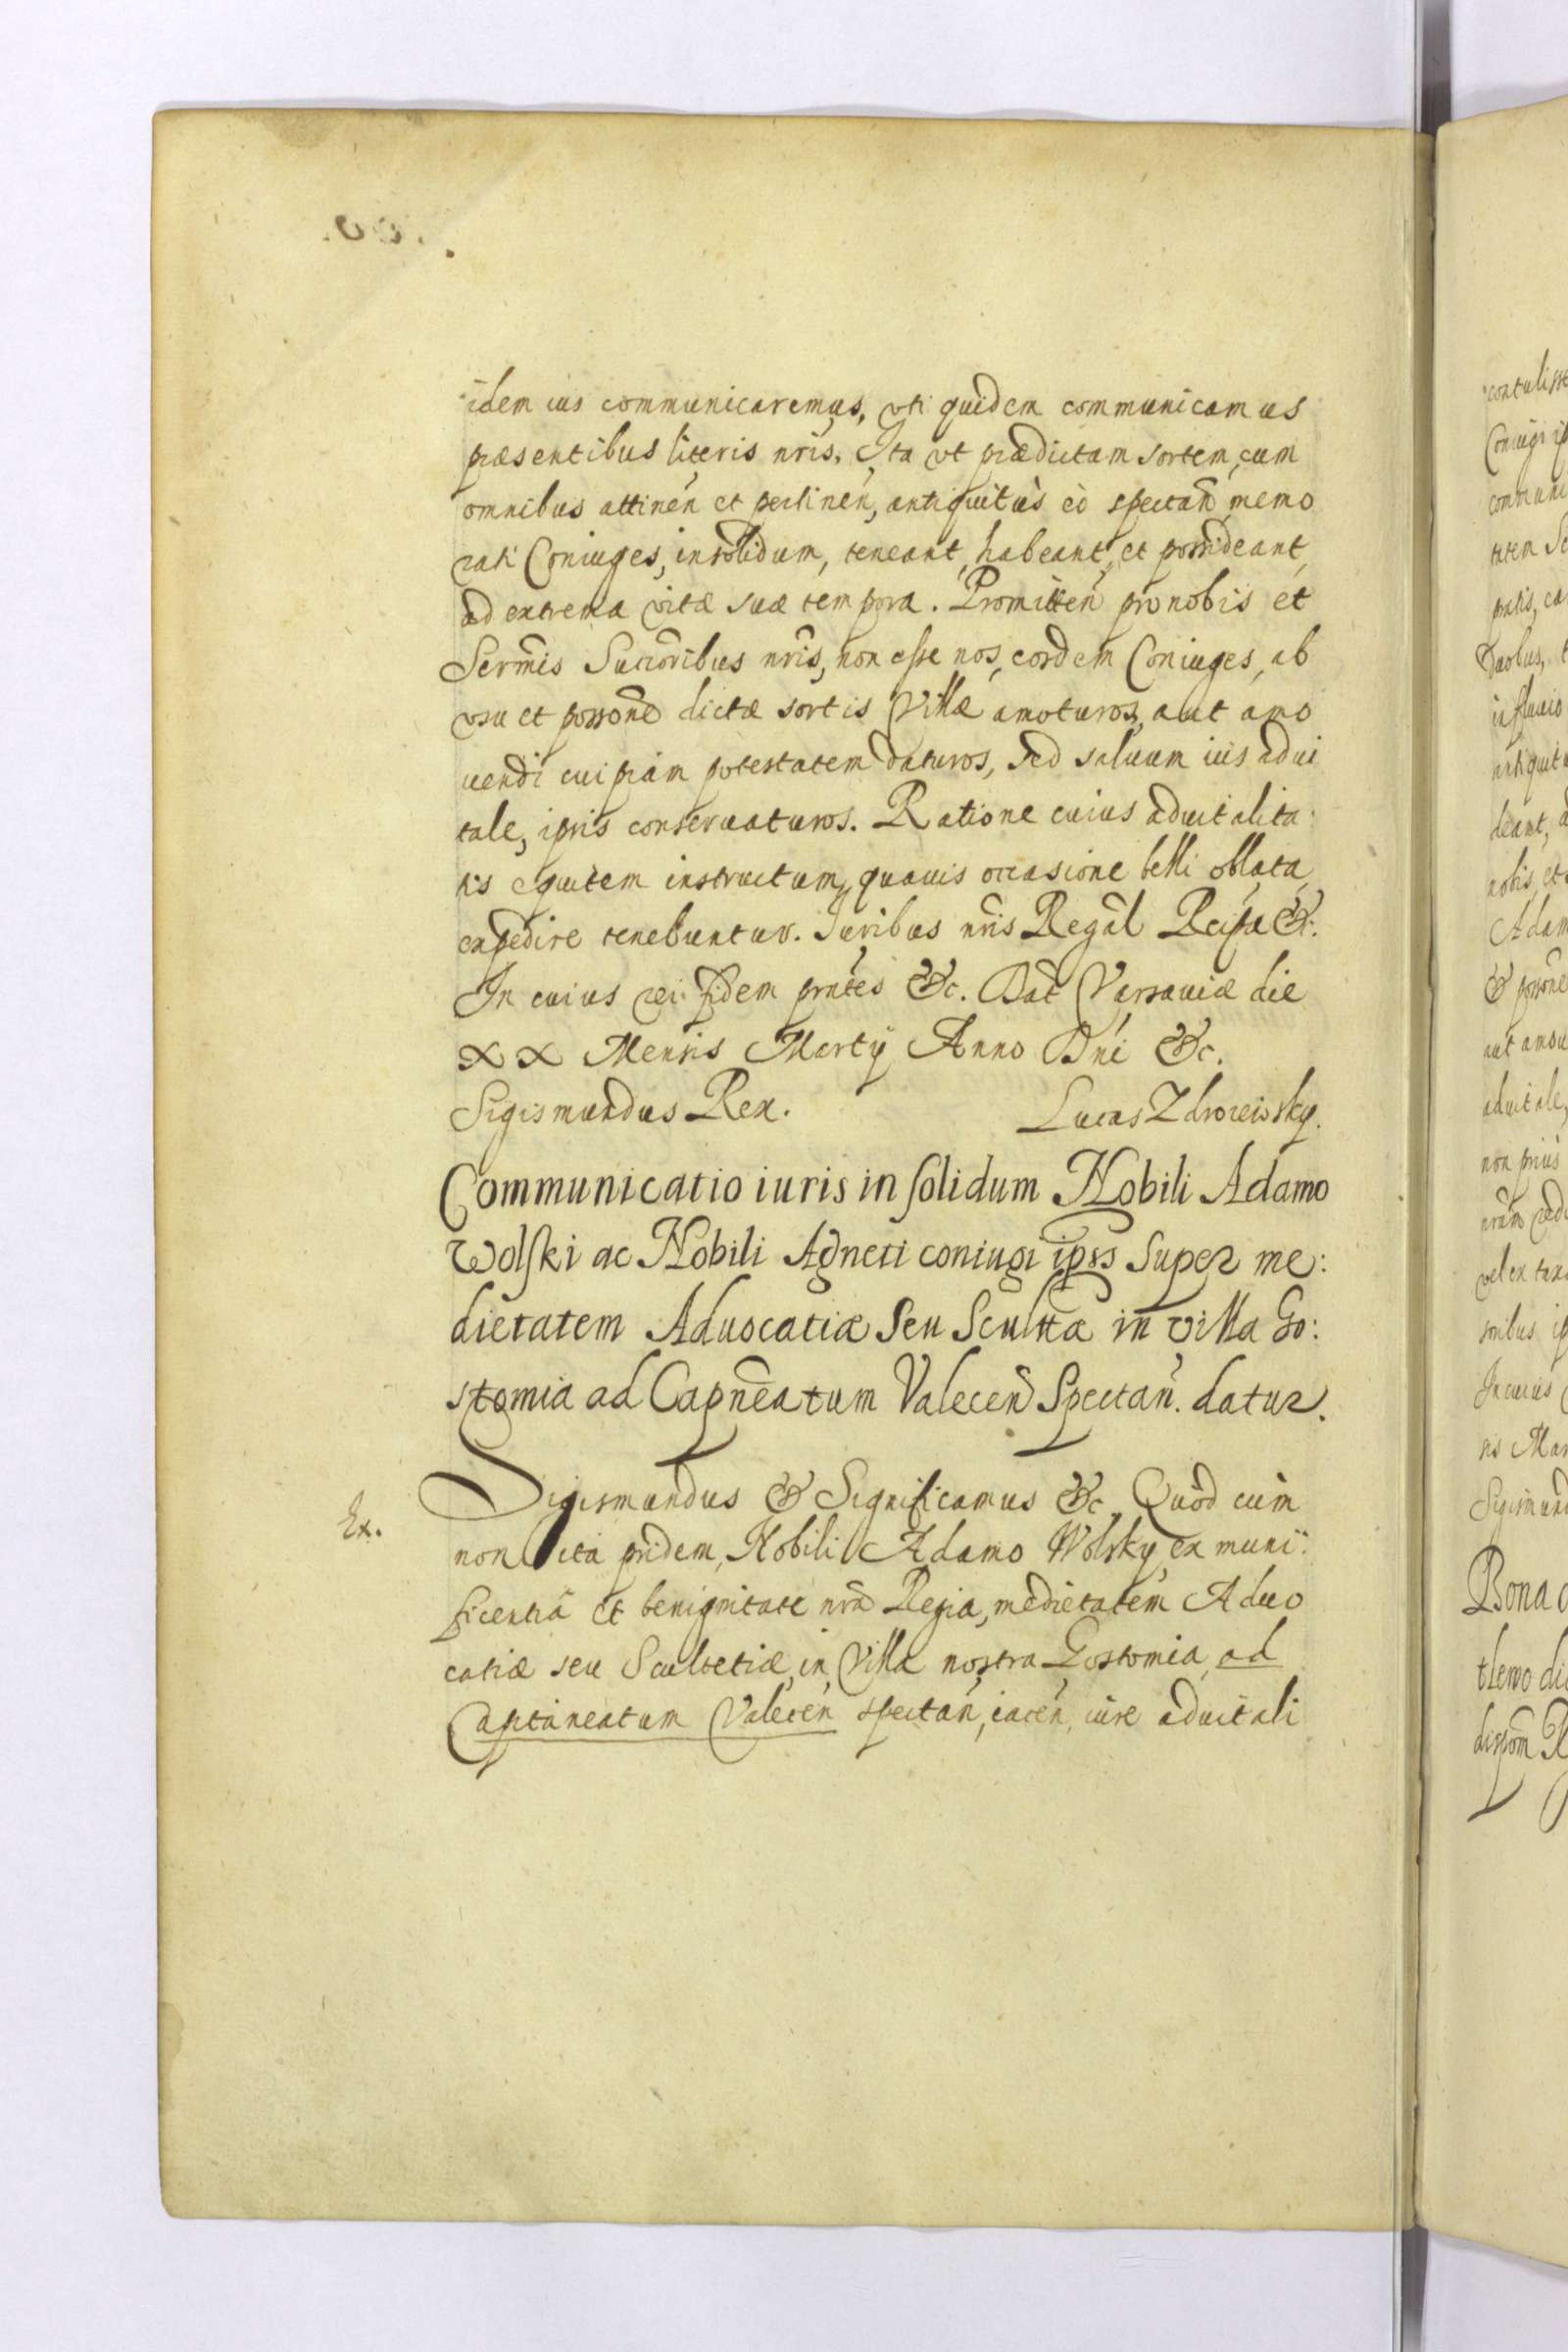 idem ius communicaremus, uti quidem communicamus
præsentibus literis nris. Ita ut prædictam sortem, cum
omnibus attinen et pertinen, antiquitùs eò spectan, memo
rati Coniuges, insolidum, teneant, habeant, et possideant,
ad extrema vitæ suæ tempora. Promitten pro nobis et
Sermis Succoribus nris, non esse nos, eosdem Coniuges, ab
usu et possone dictæ sortis Villæ amoturos, aut amo
uendi cuipiam potestatem daturos, sed saluum ius adui
tale, ipsis conseruaturos. Ratione cuius aduitalita
tis equitem instructum, quauis occasione belli oblata,
expedire tenebuntur. Iuribus nris Regal Reipa &.
In cuius rei fidem prntes &c. Dat Varsauiæ die
XX Mensis Martij Anno Dni &c.
Sigismundus Rex. Lucas Zdroieisky.
Communicatio iuris in solidum Nobili Adamo
Wolski ac Nobili Agneti coniugi ipss super me:
dietatem Aduocatiæ seu Scultta in villa Go:
stomia ad Capneatum Valecen Spectan. datur.
Ex.
Sigismundus & Significamus &c Quòd cùm
non ita pridem, Nobili Adamo Wolsky, ex muni:
ficentiâ et benignitate nrâ Regia, medietatem Aduo
catiæ seu Scultetiæ, in Villa nostra Gostomia, ad
Captaneatum Valecen spectan, iacen, iure aduitali
contulisse
Coniugi ip
communi
tatem Sc
pratis, ca
Duobus,
in fluuio
antiquit
deant, a
nobis, et
Adam
& possone
aut amou
aduitale,
non priùs
nram
vel ex
soribus ip
In cuius
sis Mar
Sigismund
Bona